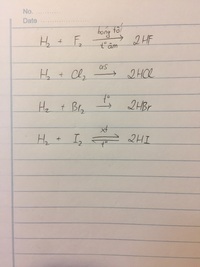 No.
Date
H₂ + F₂ bóng tối → t° âm 2HF
H₂ + Cl₂ as → 2HCl
H₂ + Br₂ t° → 2HBr
H₂ + I₂ xt ⇌ t° 2HI